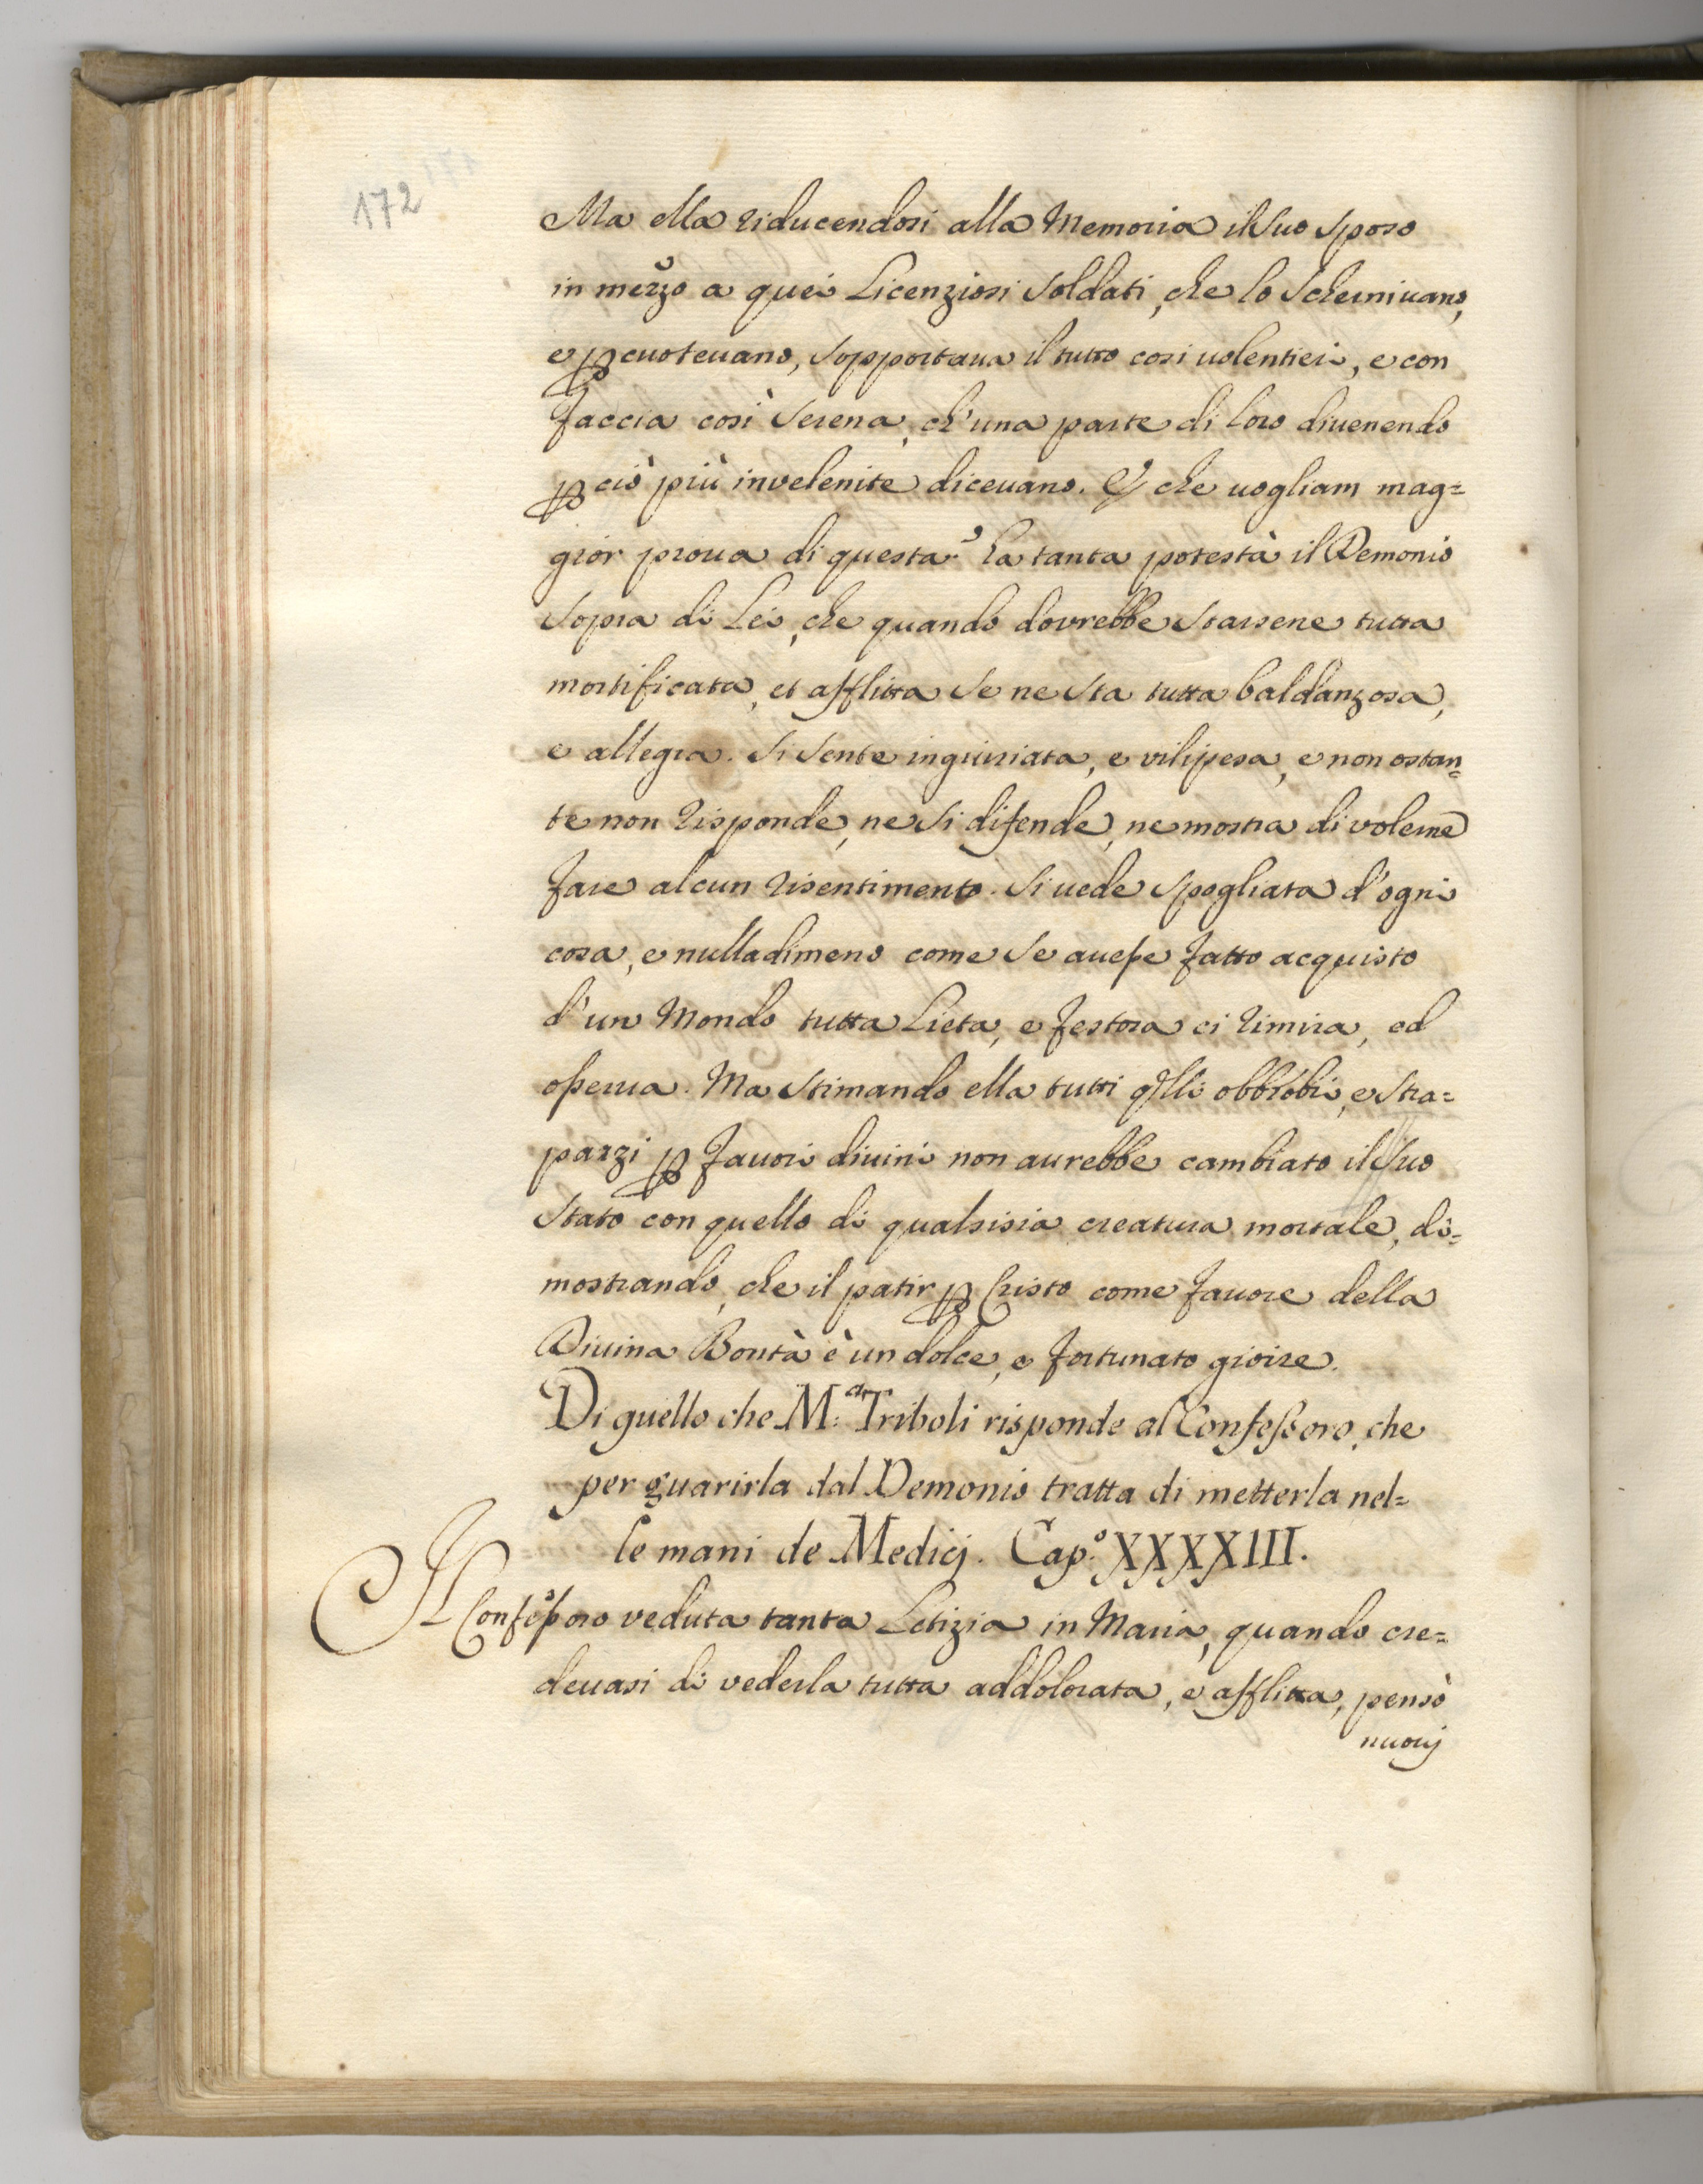 172
Ma ella riducendosi alla Memoria il suo Sposo
in mezzo a quei Licenziosi Soldati, che lo Schernivano,
e ꝑcuotevano, Sopportava il tutto cosi volentieri, e con
faccia così Serena, ch'una parte di loro divenendo
ꝑ ciò più invelenite dicevano. E che vogliam mag=
gior prova di questa? ha tanta potestà il Demonio
Sopra di Lei, che quando dovrebbe Starsene tutta
mortificata, et afflitta Se ne Sta tutta baldanzosa,
e allegra. Si Sente ingiuriata, e vilipesa, e non ostan=
te non risponde, ne Si difende, ne mostra di volerne
fare alcun risentimento. Si vede Spogliata d'ogni
cosa, e nulladimeno come Se avesse fatto acquisto
d'un Mondo tutta Lieta, e festosa ci rimira, ed
osserva. Ma Stimando ella tutti qlli obbrobri, e Stra=
pazzi ꝑ favori divini non aurebbe cambiato il Suo
Stato con quello di qualsisia creatura mortale, di=
mostrando, che il patir ꝑ Cristo come favore della
Divina Bontà è un dolce, e fortunato gioire.
Di quello che M.a Triboli risponde al Confessoro, che
per guarirla dal Demonio tratta di metterla nel=
le mani de Medicj. Cap.o XXXXIII.
Il Confessoro veduta tanta Letizia in Maria, quando cre=
devasi di vederla tutta addolorata, e afflitta, pensò
nuovj